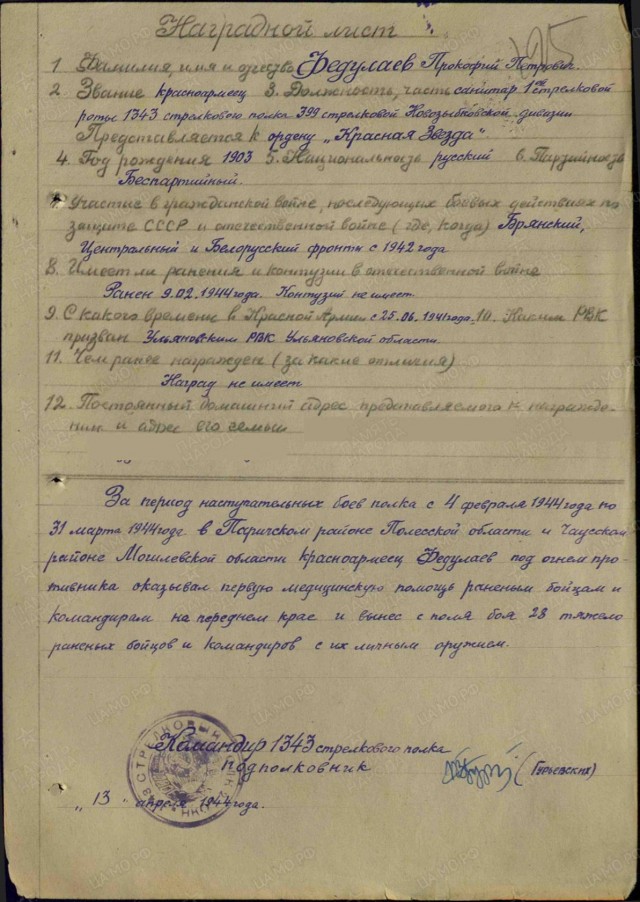 Наградной лист
1. Фамилия, имя и отчество Федулаев Прокофий Петрович.
2. Звание красноармеец 3. Должность, часть санитар 1ой стрелковой
роты 1343 стрелкового полка 399 стрелковой Новозыбковской дивизии
Представляется к ордену „Красная Звезда"
4. Год рождения 1903 5. Национальность русский 6. Партийность
Беспартийный.
7. Участие в гражданской войне, последующих боевых действиях по
защите СССР и отечественной войне (где, когда) Брянский,
Центральный и Белорусский фронты с 1942 года
8. Имеет ли ранения и контузии в отечественной войне
Ранен 9.02.1944 года. Контузий не имеет
9. С какого времени в Красной Армии с 25.06.1941 года. 10. Каким РВК
призван Ульяновским РВК Ульяновской области.
11. Чем ранее награжден (за какие отличия)
Наград не имеет
12. Постоянный домашний адрес представляемого к награжде-
нию и адрес его семьи
За период наступательных боев полка с 4 февраля 1944 года по
31 марта 1944 года в Паричском районе Полесской области и Чаусском
районе Могилевской области красноармеец Федулаев под огнем про-
тивника оказывал первую медицинскую помощь раненым бойцам и
командирам на переднем крае и вынес с поля боя 28 тяжело
раненых бойцов и командиров с их личным оружием.
Командир 1343 стрелкового полка
подполковник (Гурьевский)
„13" апреля 1944 года.
ЦАМО.РФ